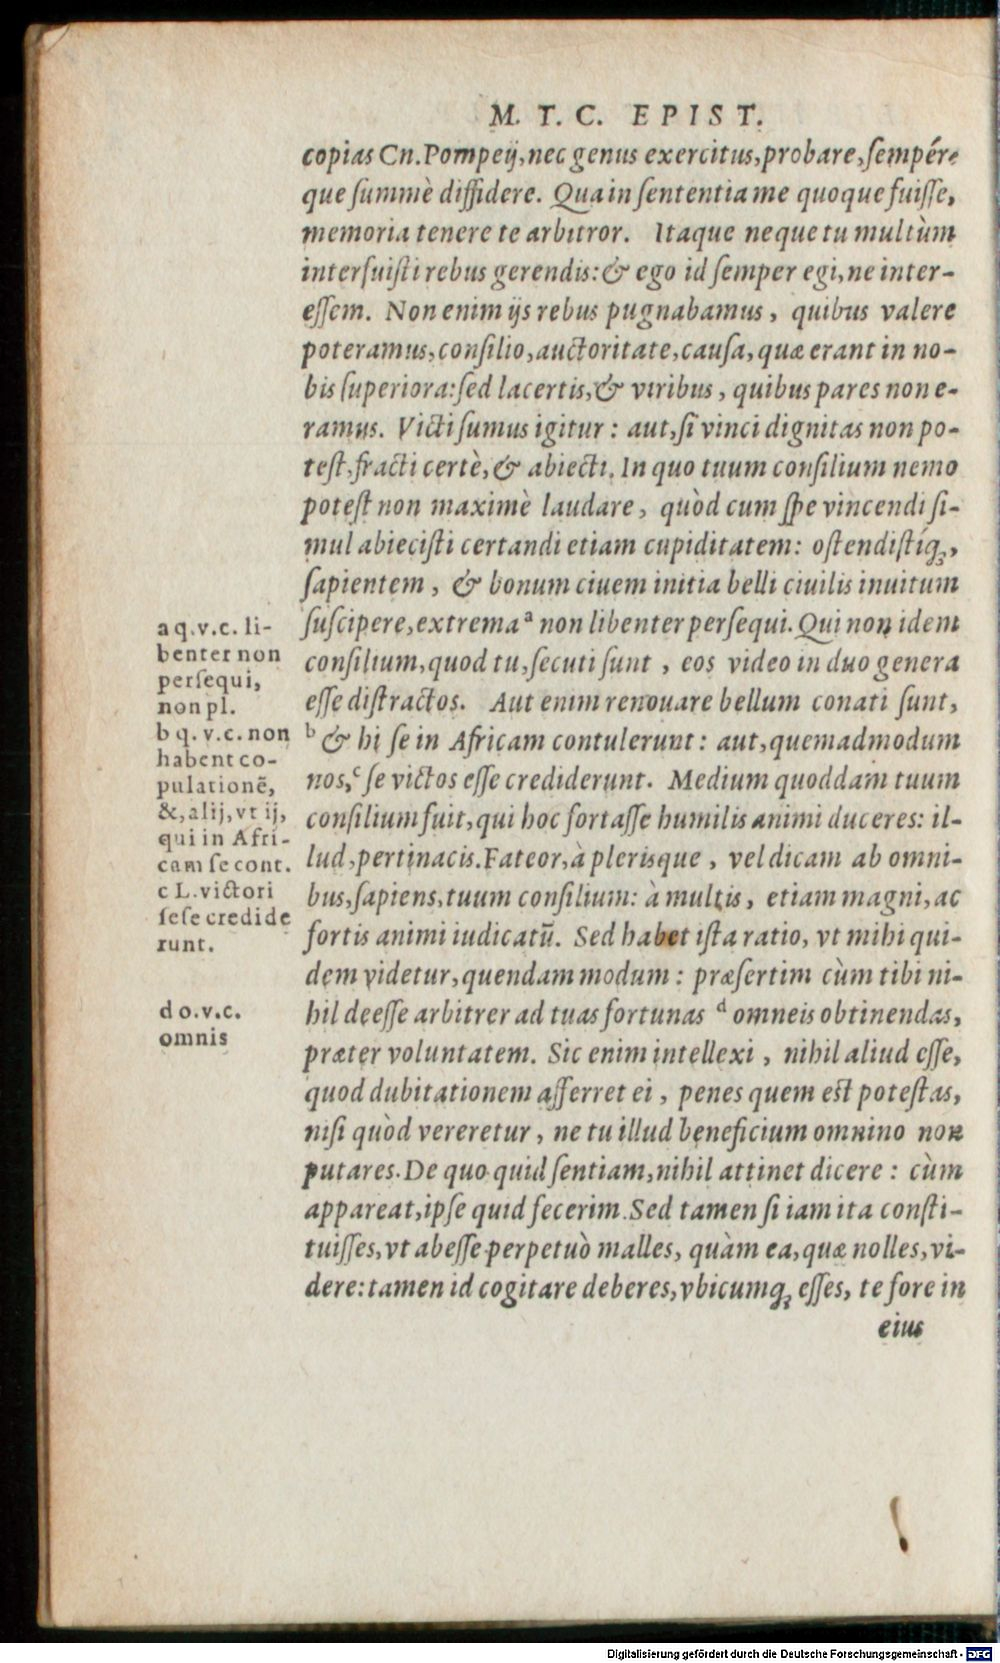 M. T. C. EPIST.
copias Cn. Pompeij, nec genus exercitus, probare, sempér-
que summè diffidere. Qua in sententia me quoque fuisse,
memoria tenere te arbitror. Itaque neque tu multùm
interfuisti rebus gerendis: & ego id semper egi, ne inter-
essem. Non enim ijs rebus pugnabamus, quibus valere
poteramus, consilio, auctoritate, causa, quæ erant in no-
bis superiora: sed lacertis, & viribus, quibus pares non e-
ramus. Victi sumus igitur: aut, si vinci dignitas non po-
test, fracti certè, & abiecti. In quo tuum consilium nemo
potest non maximè laudare, quòd cum spe vincendi si-
mul abiecisti certandi etiam cupiditatem: ostendistíq;,
sapientem, & bonum ciuem initia belli ciuilis inuitum
suscipere, extrema a non libenter persequi. Qui non idem
consilium, quod tu, secuti sunt, eos video in duo genera
esse distractos. Aut enim renouare bellum conati sunt,
b & hi se in Africam contulerunt: aut, quemadmodum
nos, c se victos esse crediderunt. Medium quoddam tuum
consilium fuit, qui hoc fortasse humilis animi duceres: il-
lud, pertinacis. Fateor, à plerisque, vel dicam ab omni-
bus, sapiens, tuum consilium: à multis, etiam magni, ac
fortis animi iudicatũ. Sed habet ista ratio, vt mihi qui-
dem videtur, quendam modum: præsertim cùm tibi ni-
hil deesse arbitrer ad tuas fortunas d omneis obtinendas,
præter voluntatem. Sic enim intellexi, nihil aliud esse,
quod dubitationem afferret ei, penes quem est potestas,
nisi quòd vereretur, ne tu illud beneficium omnino non
putares. De quo quid sentiam, nihil attinet dicere: cùm
appareat, ipse quid fecerim. Sed tamen si iam ita consti-
tuisses, vt abesse perpetuò malles, quàm ea, quæ nolles, vi-
dere: tamen id cogitare deberes, vbicumq; esses, te fore in
eius
a q.v.c. li-
benter non
persequi,
non pl.
b q.v.c. non
habent co-
pulationẽ,
&, alij, vt ij,
qui in Afri-
cam se cont.
c L. victori
sese credide
runt.
d o.v.c.
omnis
Digitalisierung gefördert durch die Deutsche Forschungsgemeinschaft - DFG